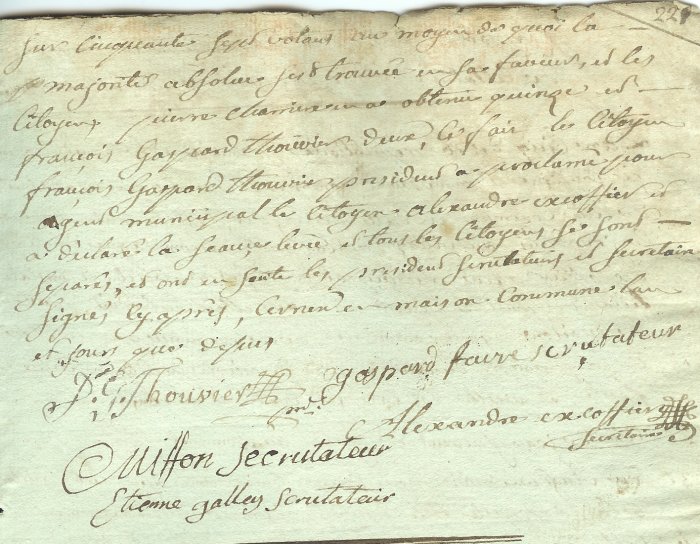 221
sur cinquante sept votans au moyen de quoi la
majorité absolue sest trouvée en sa faveur, et les
Citoyens pierre Charriere en a obtenu quinze et
françois Gaspard Thouvier deux, Ce fait le Citoyen
françois Gaspard Thouvier president a proclamé pour
agent municipal le Citoyen Alexandre excoffier et
a déclaré la seance levée et tous les Citoyens se sont
separés, et ont en suite les president scrutateurs et secretaire
signés Cy après, Cernex en maison Commune lan
et jours que dessus
f. G. Thouvier gaspard favre scrutateur
Alexandre excoffier
secretaire
Ouiffon secrutateur
Etienne galley scrutateur